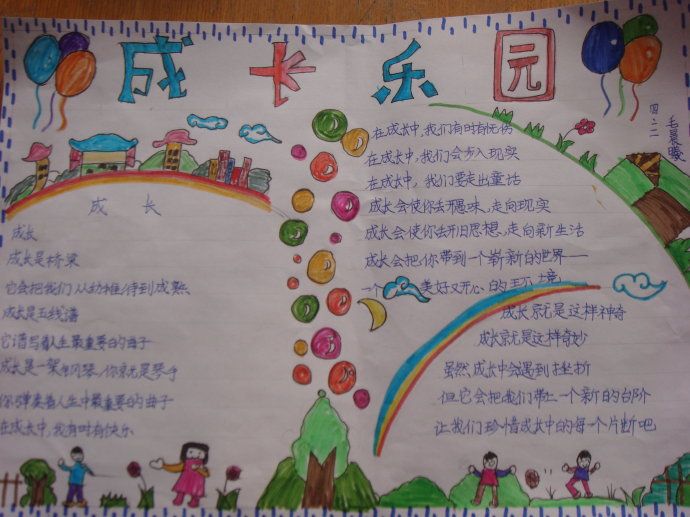 成长乐园
四二二
毛晨曦
成长
成长
成长是桥梁
它会把我们从幼稚带到成熟
成长是五线谱
它谱写着人生最重要的曲子
成长是一架钢琴,你就是琴手
你弹奏着人生中最重要的曲子
在成长中,我有时有快乐
在成长中,我们有时有忧伤
在成长中,我们会步入现实
在成长中,我们要走出童话
成长会使你去开愚昧,走向现实
成长会使你去开旧思想,走向新生活
成长会把你带到一个崭新的世界——
一个美好又开心的环境
成长就是这样神奇
成长就是这样奇妙
虽然成长中会遇到挫折
但它会把我们带上一个新的台阶
让我们珍惜成长中的每一个片断吧